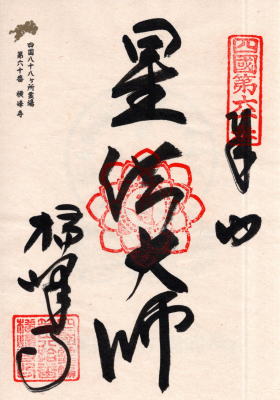 四國第六十番
奉納
星供大師
横峰寺
四国八十八ヶ所霊場
第六十番 横峰寺